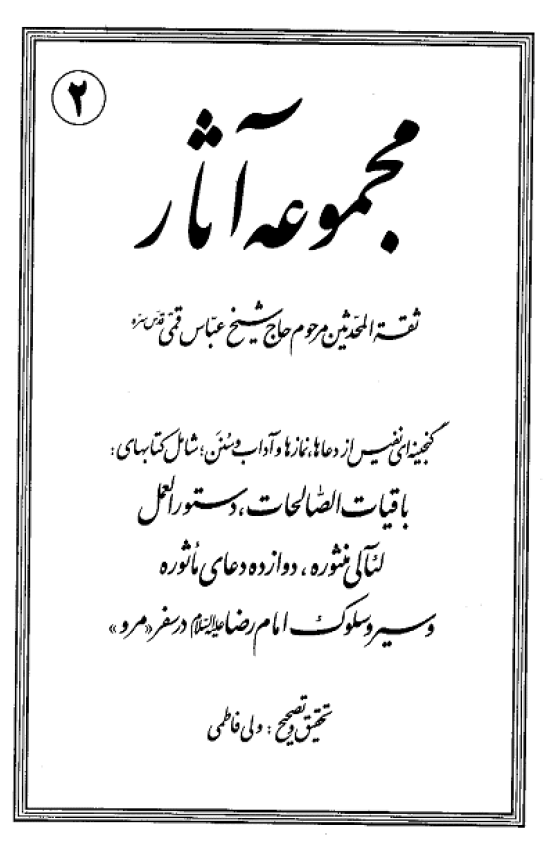 ۲
مجموعه آثار
ثقة المحدّثین مرحوم حاج شیخ عبّاس قمّی قدّس سرّه
گنجینه‌ای نفیس از دعاها، نمازها و آداب و سُنَن؛ شامل کتابهای:
باقیات الصّالحات، دستورالعمل
لئالی منثوره، دوازده دعای مأثوره
و سیر و سلوک امام رضا علیه‌السلام در سفر «مرو»
تحقیق و تصحیح: ولی فاطمی